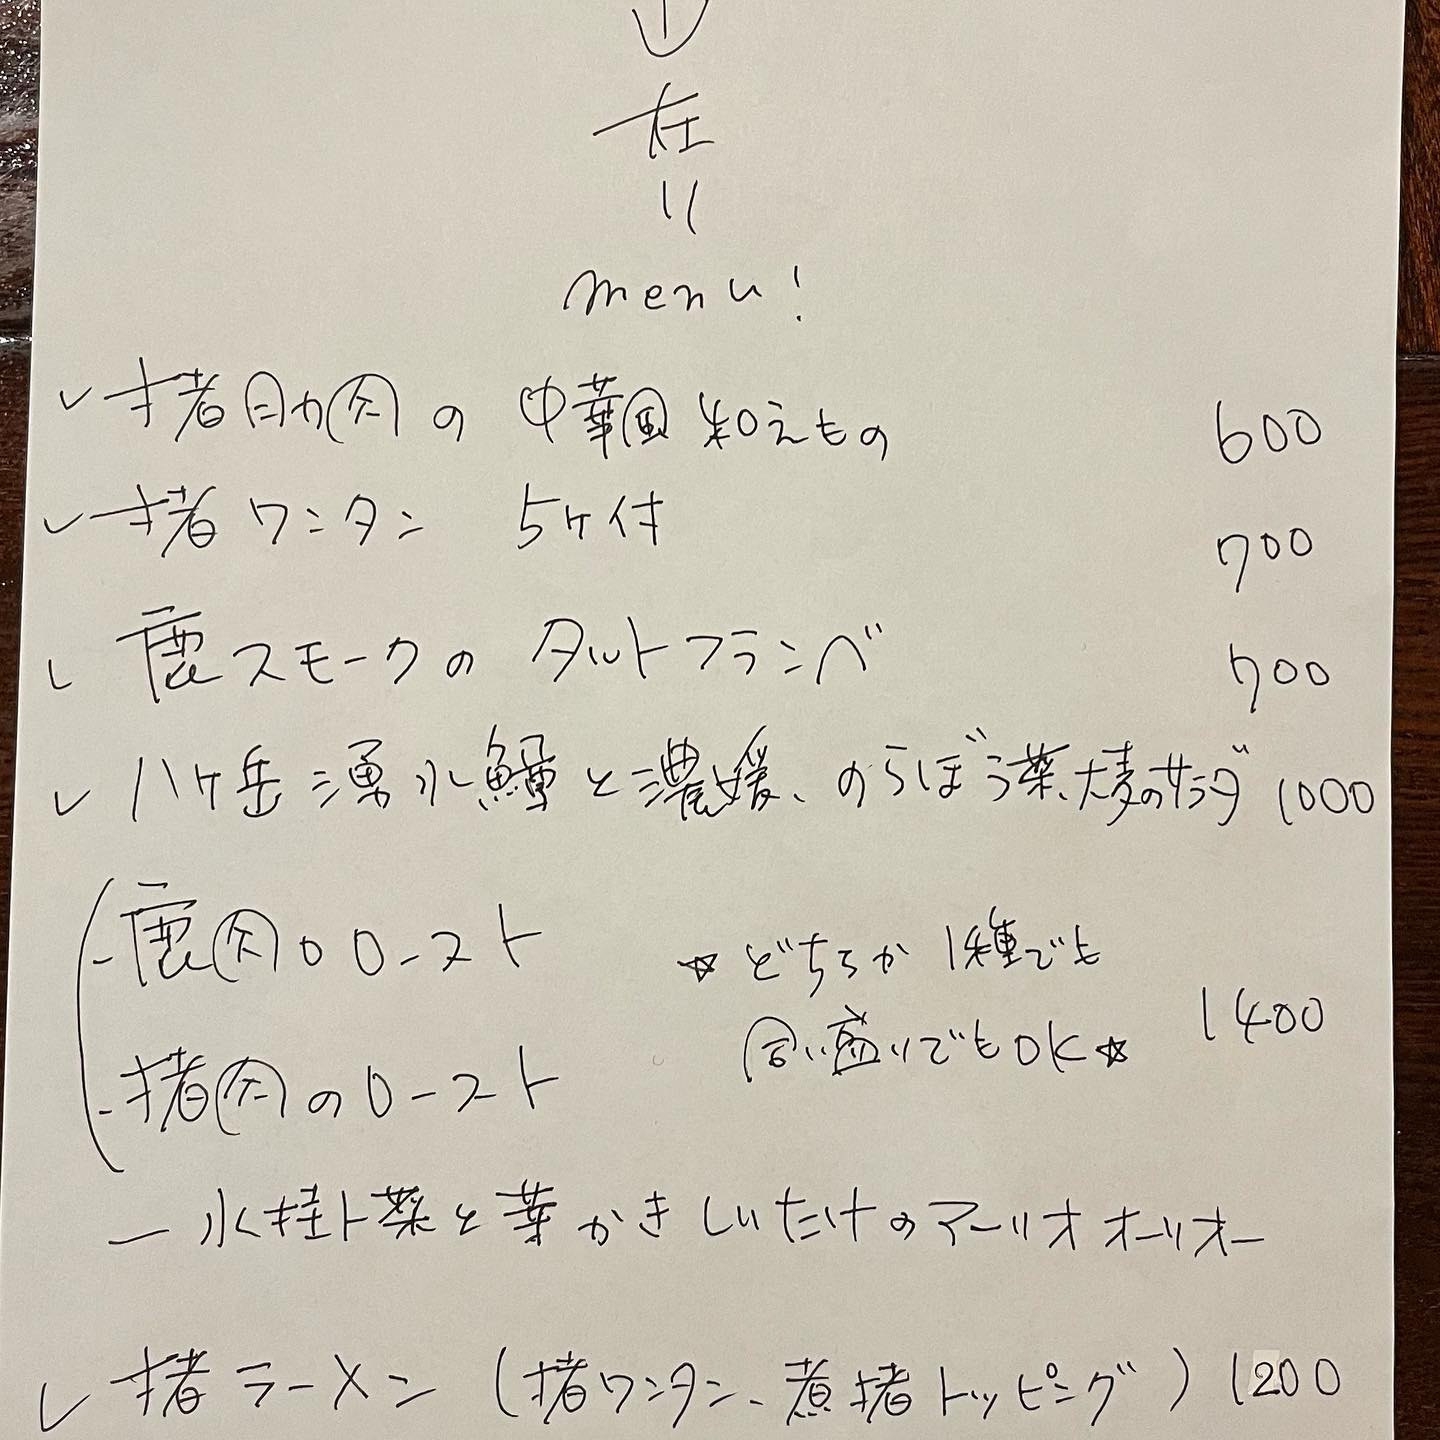 在
り
menu!
✓ 猪胸肉の中華風和えもの 600
✓ 猪ワンタン 5ヶ付 700
✓ 鹿スモークのタルトフランベ 700
✓ 八ヶ岳湧水鱒と濃媛、のらぼう菜、大麦のサラダ 1000
- 鹿肉のロースト ☆どちらか1種でも
合い盛りでもOK☆ 1400
- 猪肉のロースト
ー 水挂卜菜と葉かきしいたけのアーリオオーリオー
✓ 猪ラーメン (猪ワンタン、煮猪トッピング) 1200